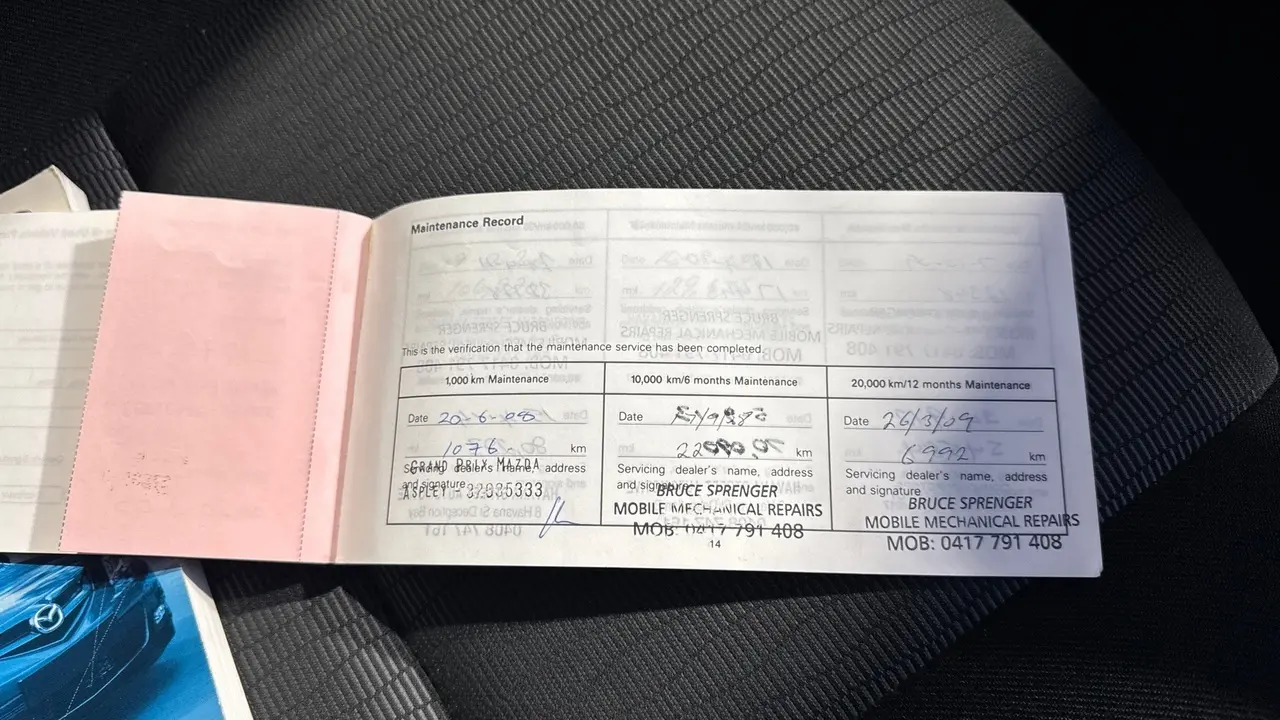 Maintenance Record
This is the verification that the maintenance service has been completed.
1,000 km Maintenance
Date 20-6-08
1076 km
Servicing dealer's name, address
and signature
GRAND PRIX MAZDA
ASPLEY - 32635333
10,000 km/6 months Maintenance
Date
km
Servicing dealer's name, address
and signature
BRUCE SPRENGER
MOBILE MECHANICAL REPAIRS
MOB: 0417 791 408
20,000 km/12 months Maintenance
Date 26/3/09
6992 km
Servicing dealer's name, address
and signature
BRUCE SPRENGER
MOBILE MECHANICAL REPAIRS
MOB: 0417 791 408
14